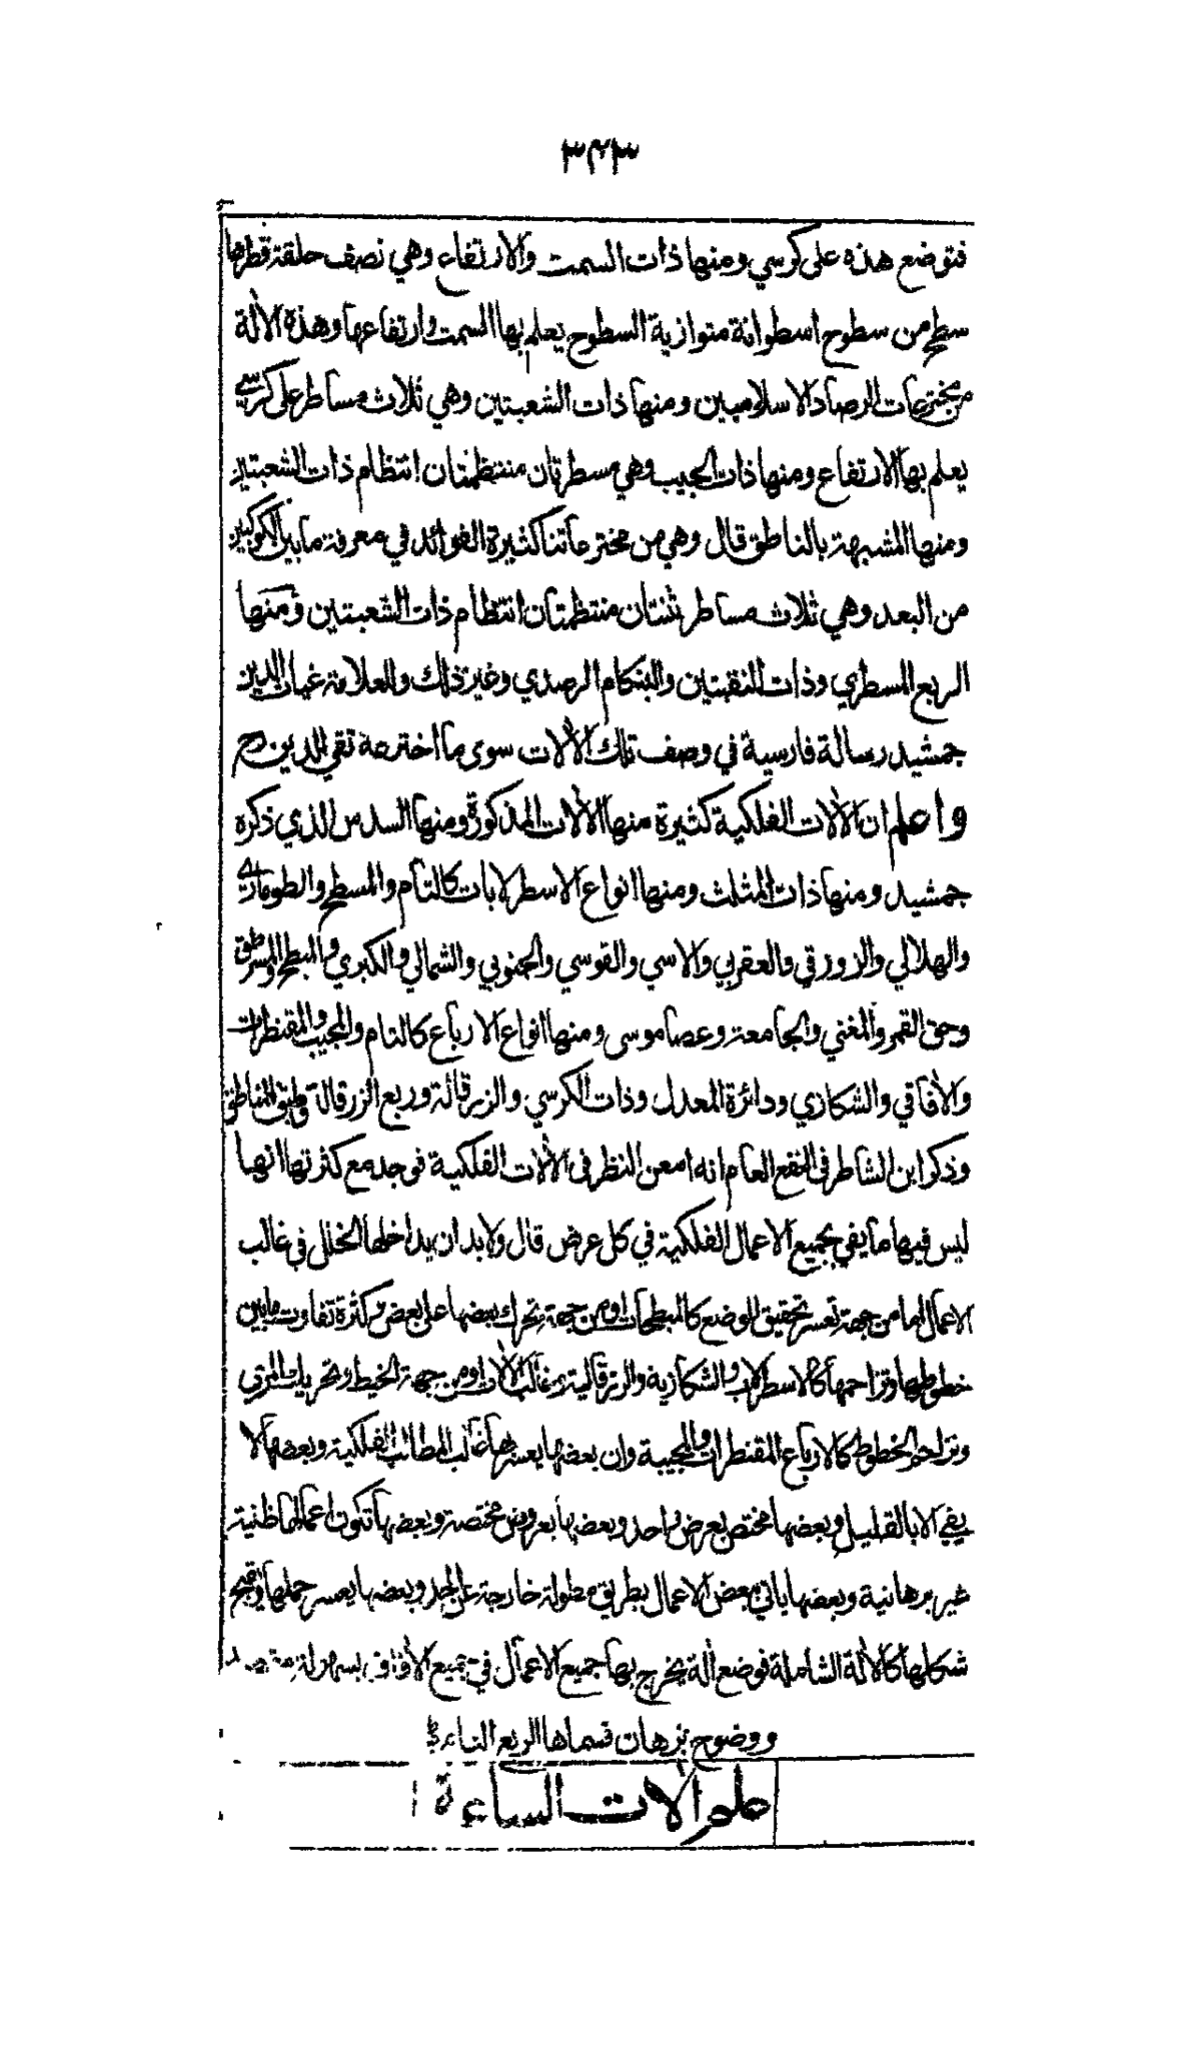 ٣٤٣
فتوضع هذه على كرسي ومنها ذات السمت والارتفاع وهي نصف حلقة قطرها
سطح من سطوح اسطوانة متوازية السطوح يعلم بها السمت وارتفاعها وهذه الآلة
من مخترعات الرصاد الاسلاميين ومنها ذات الشعبتين وهي ثلاث مساطر على كرسي
يعلم بها الارتفاع ومنها ذات الجيب وهي مسطرتان منتظمتان انتظام ذات الشعبتين
ومنها المشبهة بالناطق قال وهي من مخترعاتنا كثيرة الفوائد في معرفة ما بين الكوكبين
من البعد وهي ثلاث مساطر ثنتان منتظمتان انتظام ذات الشعبتين ومنها
الربع المسطري وذات النقبتين والبنكام الرصدي وغير ذلك وللعلامة غياث الدين
جمشيد رسالة فارسية في وصف تلك الآلات سوى ما اخترعه تقي الدين رح
واعلم ان الآلات الفلكية كثيرة منها الآلات المذكورة ومنها السدس الذي ذكره
جمشيد ومنها ذات المثلث ومنها انواع الاسطرلابات كالتام والمسطح والطوماري
والهلالي والزورقي والعقربي والاسي والقوسي والجنوبي والشمالي والكبري والمبطح والمسرطق
وحق القمر والمغني والجامعة وعصا موسى ومنها انواع الارباع كالتام والمجيب والمقنطرات
والآفاقي والشكازي ودائرة المعدل وذات الكرسي والزرقالة وربع الزرقالة وطبق المناطق
وذكر ابن الشاطر في النفع العام انه امعن النظر في الآلات الفلكية فوجد مع كثرتها انها
ليس فيها ما يفي بجميع الاعمال الفلكية في كل عرض قال ولا بد ان يداخلها الخلل في غالب
الاعمال اما من جهة تعسر تحقيق الوضع كالمبطحات او من جهة تحرك بعضها على بعض وكثرة تفاوت ما بين
خطوطها وتزاحمها كالاسطرلاب والشكازية والزرقالية وغالب الآلات او من جهة الخيط وتحريك المري
وتزاحم الخطوط كالارباع المقنطرات والمجيبة وان بعضها يعسر بها غالب المطالب الفلكية وبعضها لا
يفي الا بالقليل وبعضها مختص بعرض واحد وبعضها بعروض مختصة وبعضها تكون اعمالها ظنية
غير برهانية وبعضها ياتي ببعض الاعمال بطريق مطولة خارجة عن الحد وبعضها يعسر حملها وقبح
شكلها كالآلة الشاملة فوضع آلة يخرج بها جميع الاعمال في جميع الآفاق بسهولة
ووضوح برهان فسماها الربع التام
علم آلات الساعة